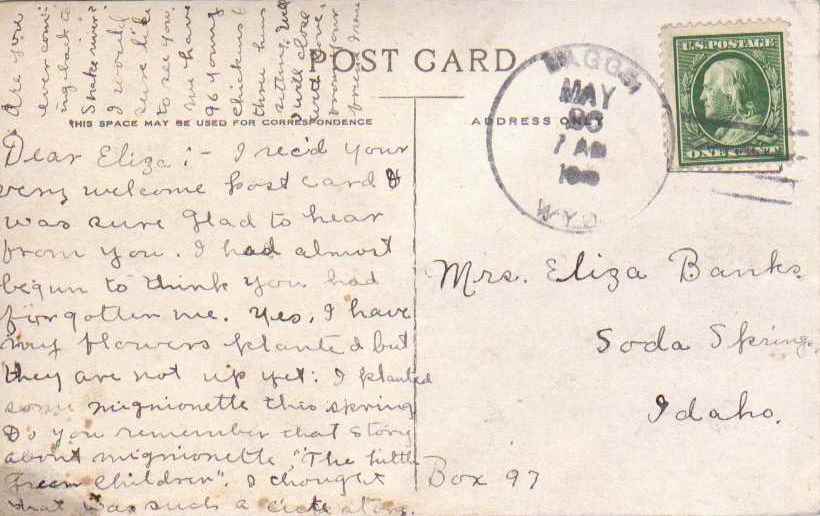 POST CARD
THIS SPACE MAY BE USED FOR CORRESPONDENCE
ADDRESS ONLY
Dear Eliza:- I rec'd your
very welcome post card &
was sure glad to hear
from you. I had almost
begun to think you had
forgotten me. Yes, I have
my flowers planted but
they are not up yet. I planted
some mignionette this spring
Do you remember that story
about mignionette, "The little
Green Children". I thought
that was such a cute story.
Are you
ever com-
ing back to
Snake river?
I would
sure like
to see you.
We have
96 young
chickens &
three hens
setting. Will
close
with love,
from your
friend Irene
MAY
30
7 AM
WYO.
U.S. POSTAGE
ONE CENT
Mrs. Eliza Banks.
Soda Springs,
Idaho.
Box 97